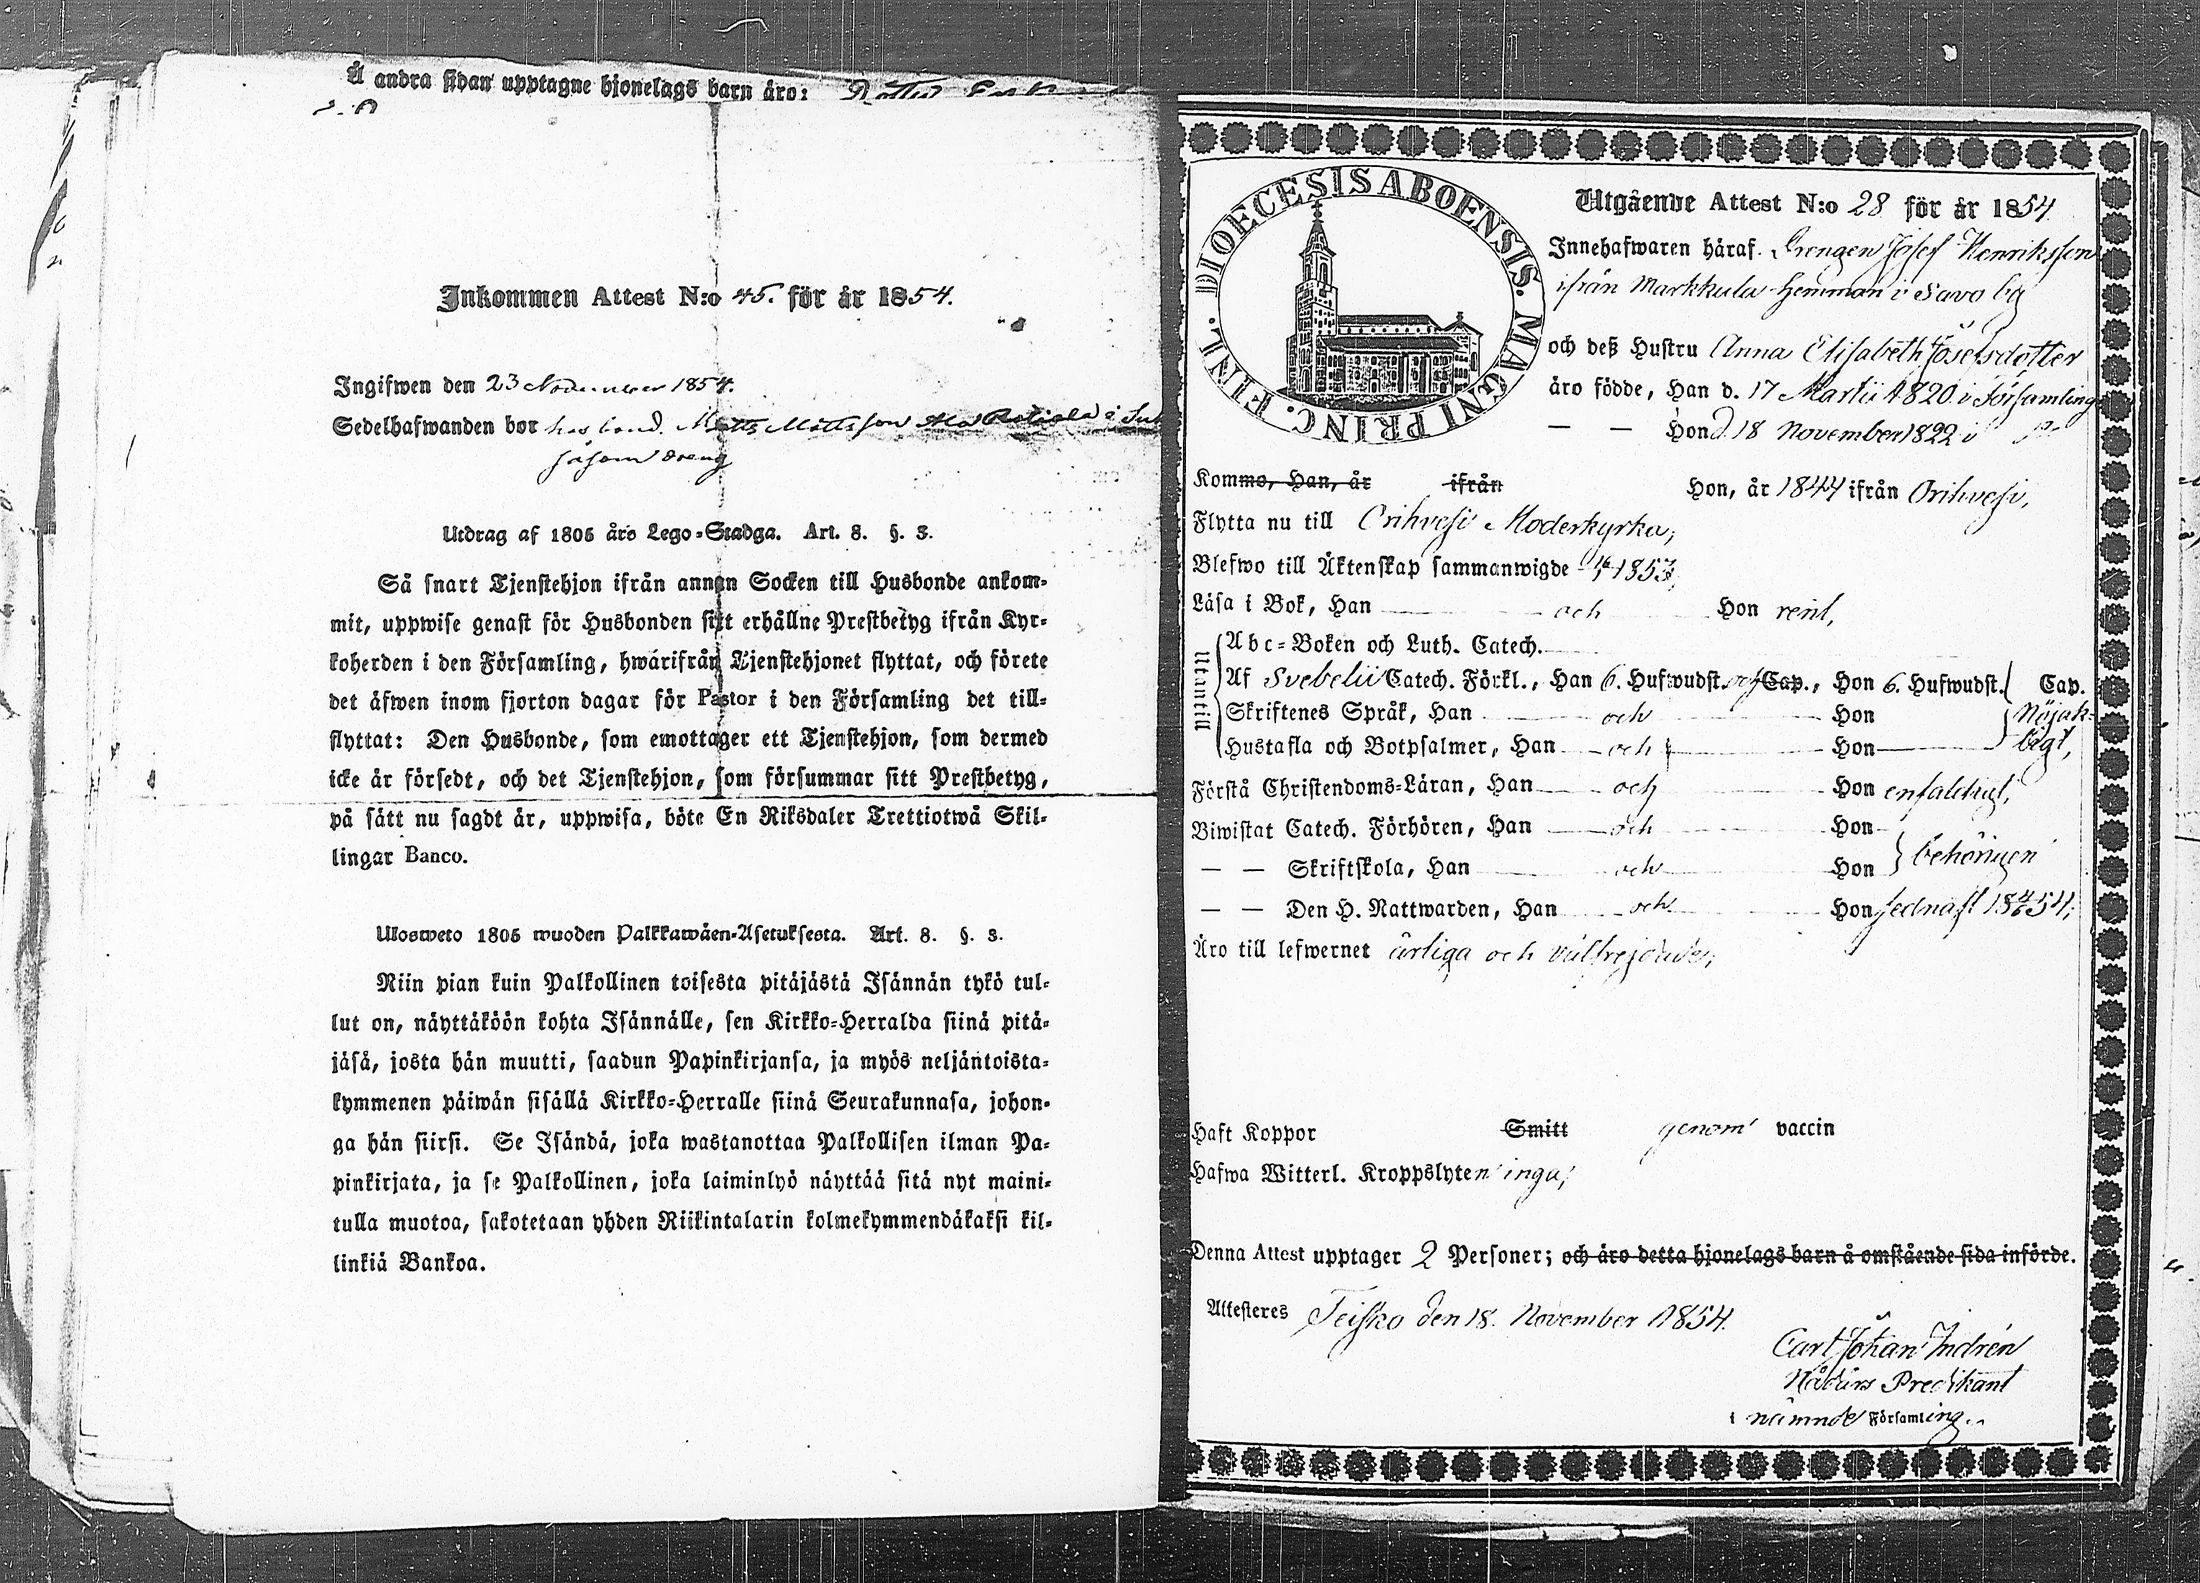 Å andra sidan upptagne hjonelags barn äro:
Inkommen Attest N:o 45. för år 1854.
Ingifwen den 23 November 1854.
Sedelhafwanden bor hos bond. Matts Mattsson
såsom dreng
Utdrag af 1805 års Lego-Stadga. Art. 8. §. 3.
Så snart Tjenstehjon ifrån annan Socken till Husbonde ankom-
mit, uppwise genast för Husbonden sitt erhållne Prestbetyg ifrån Kyr-
koherden i den Församling, hwarifrån Tjenstehjonet flyttat, och förete
det äfwen inom fjorton dagar för Pastor i den Församling det till-
flyttat: Den Husbonde, som emottager ett Tjenstehjon, som dermed
icke är försedt, och det Tjenstehjon, som försummar sitt Prestbetyg,
på sätt nu sagdt är, uppwisa, böte En Riksdaler Trettiotwå Skil-
lingar Banco.
Ulosweto 1805 wuoden Palkkawäen-Asetuksesta. Art. 8. §. 3.
Niin pian kuin Palkollinen toisesta pitäjästä Isännän tykö tul-
lut on, näyttäköön kohta Isännälle, sen Kirkko-Herralda siinä pitä-
jäsä, josta hän muutti, saadun Papinkirjansa, ja myös neljäntoista-
kymmenen päiwän sisällä Kirkko-Herralle siinä Seurakunnasa, johon-
ga hän siirsi. Se Isändä, joka wastanottaa Palkollisen ilman Pa-
pinkirjata, ja se Palkollinen, joka laiminlyö näyttää sitä nyt maini-
tulla muotoa, sakotetaan yhden Riikintalarin kolmekymmendäkaksi kil-
linkiä Bankoa.
DIOECESIS ABOENSIS. MAGNI PRINC. FINL.
Utgående Attest N:o 28 för år 1854
Innehafwaren häraf. Drengen Josef Henriksson
ifrån Markkula hemman i Savo by
och deß Hustru Anna Elisabeth Josefsdotter
äro födde, Han d. 17 Martii 1820 i Församling
— — Hon d. 18 November 1822 i
Komme, Han, år ifrån Hon, år 1844 ifrån Orihvesi,
Flytta nu till Orihvesi Moderkyrka,
Blefwo till Äktenskap sammanwigde 1853,
Läsa i Bok, Han och Hon rent,
Utantill
Abc-Boken och Luth. Catech.
Af Svebelii Catech. Förkl., Han 6. Hufwudst. och Cap., Hon 6. Hufwudst. Cap.
Skriftenes Språk, Han och Hon Nöjak-
Hustafla och Botpsalmer, Han och Hon ligt,
Förstå Christendoms-Läran, Han och Hon enfaldigt,
Biwistat Catech. Förhören, Han och Hon
— — Skriftskola, Han och Hon behörigen
— — Den H. Nattwarden, Han och Hon sednast 1854;
Äro till lefwernet ärliga och välfrejdade,
Haft Koppor Smitt genom vaccin
Hafwa Witterl. Kroppslyten inga,
Denna Attest upptager 2 Personer; och äro detta hjonelags barn å omstående sida införde.
Attesteres Teisko den 18. November 1854.
Carl Johan Indrén
Nådårs Predikant
i nämnde Församling.